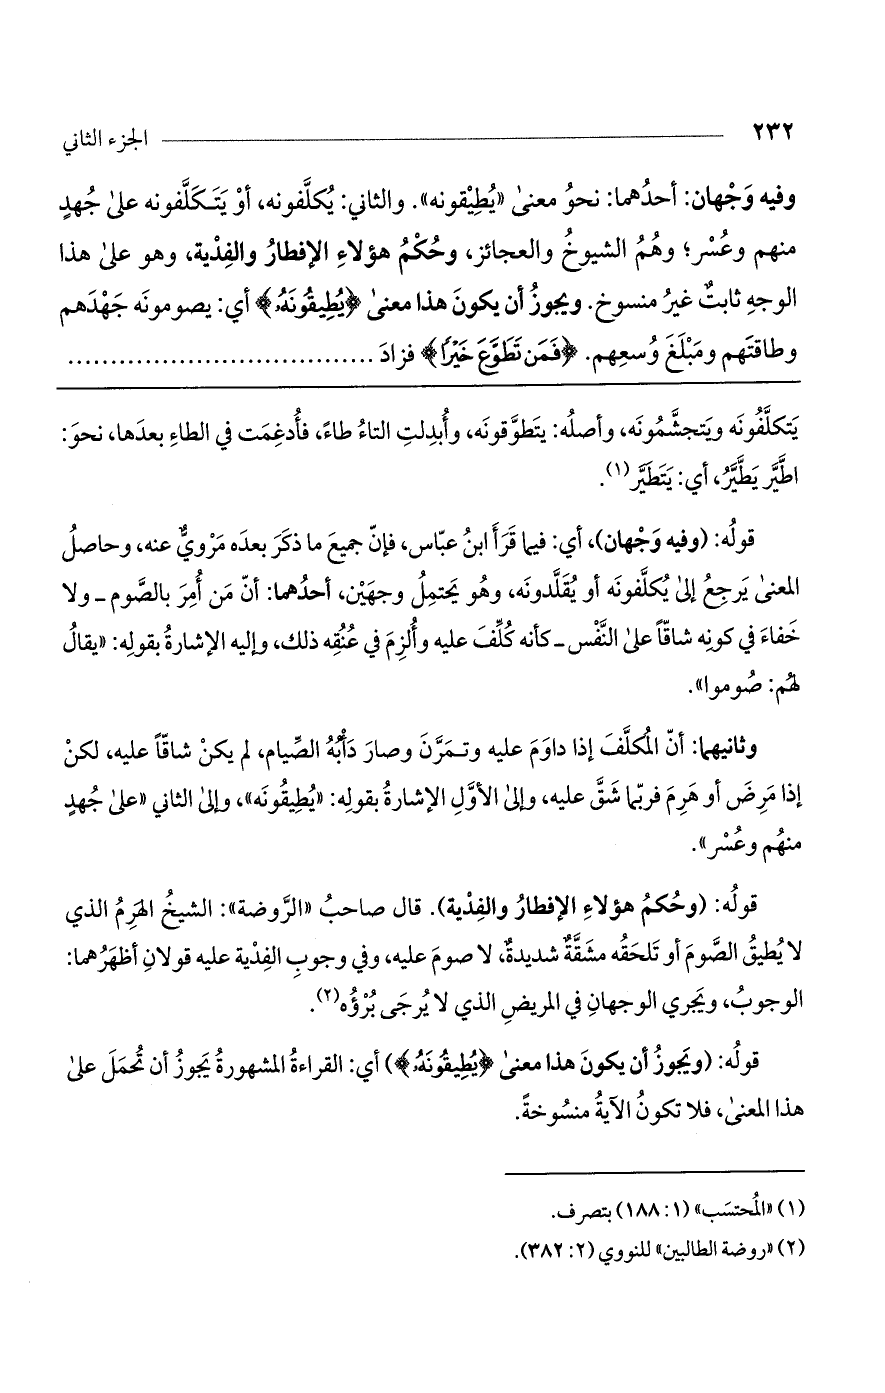 ٢٣٢ الجزء الثاني
وفيه وَجْهان: أحدُهما: نحوُ معنىٰ «يُطِيْقونه». والثاني: يُكلَّفونه، أوْ يَتَـكَلَّفونه علىٰ جُهدٍ
منهم وعُسْر؛ وهُمُ الشيوخُ والعجائز، وحُكْمُ هؤلاءِ الإفطارُ والفِدْية، وهو علىٰ هذا
الوجهِ ثابتٌ غيرُ منسوخ. ويجوزُ أن يكونَ هذا معنىٰ ﴿يُطِيقُونَهُۥ﴾ أي: يصومونَه جَهْدَهم
وطاقتَهم ومَبْلَغَ وُسعِهم. ﴿فَمَن تَطَوَّعَ خَيْرًا﴾ فزادَ ....................................
يَتكلَّفُونَه ويَتجشَّمُونَه، وأصلُه: يتَطوَّقونَه، وأُبدِلتِ التاءُ طاءً، فأُدغِمَت في الطاءِ بعدَها، نحوَ:
اطَّيَّر يَطَّيَّرُ، أي: يَتَطَيَّر(١).
قولُه: (وفيه وَجْهان)، أي: فيما قَرَأَ ابنُ عبّاس، فإنّ جميعَ ما ذكَرَ بعدَه مَرْويٌّ عنه، وحاصلُ
المعنىٰ يَرجِعُ إلىٰ يُكلَّفونَه أو يُقَلَّدونَه، وهُو يَحتمِلُ وجهَيْن، أحدُهما: أنّ مَن أُمِرَ بالصَّوم ـ ولا
خَفاءَ في كونِه شاقّاً علىٰ النَّفْس ـ كأنه كُلِّفَ عليه وأُلزِمَ في عُنُقِه ذلك، وإليه الإشارةُ بقولِه: «يقالُ
لهُم: صُوموا».
وثانيهما: أنّ المُكلَّفَ إذا داوَمَ عليه وتـمَرَّنَ وصارَ دَأْبُهُ الصِّيام، لم يكنْ شاقّاً عليه، لكنْ
إذا مَرِضَ أو هَرِمَ فربّما شَقَّ عليه، وإلىٰ الأوَّلِ الإشارةُ بقولِه: «يُطِيقُونَه»، وإلىٰ الثاني «علىٰ جُهدٍ
منهُم وعُسْر».
قولُه: (وحُكمُ هؤلاءِ الإفطارُ والفِدْية). قال صاحبُ «الرَّوضة»: الشيخُ الهَرِمُ الذي
لا يُطيقُ الصَّومَ أو تَلحَقُه مشَقَّةٌ شديدةٌ، لا صومَ عليه، وفي وجوبِ الفِدْية عليه قولانِ أظهَرُهما:
الوجوبُ، ويَجري الوجهانِ في المريضِ الذي لا يُرجَى بُرْؤُه(٢).
قولُه: (ويَجوزُ أن يكونَ هذا معنىٰ ﴿يُطِيقُونَهُۥ﴾) أي: القراءةُ المشهورةُ يَجوزُ أن تُحمَلَ علىٰ
هذا المعنىٰ، فلا تكونُ الآيةُ منسُوخةً.
(١) «المُحتسَب» (١: ١٨٨) بتصرف.
(٢) «روضة الطالبين» للنووي (٢: ٣٨٢).